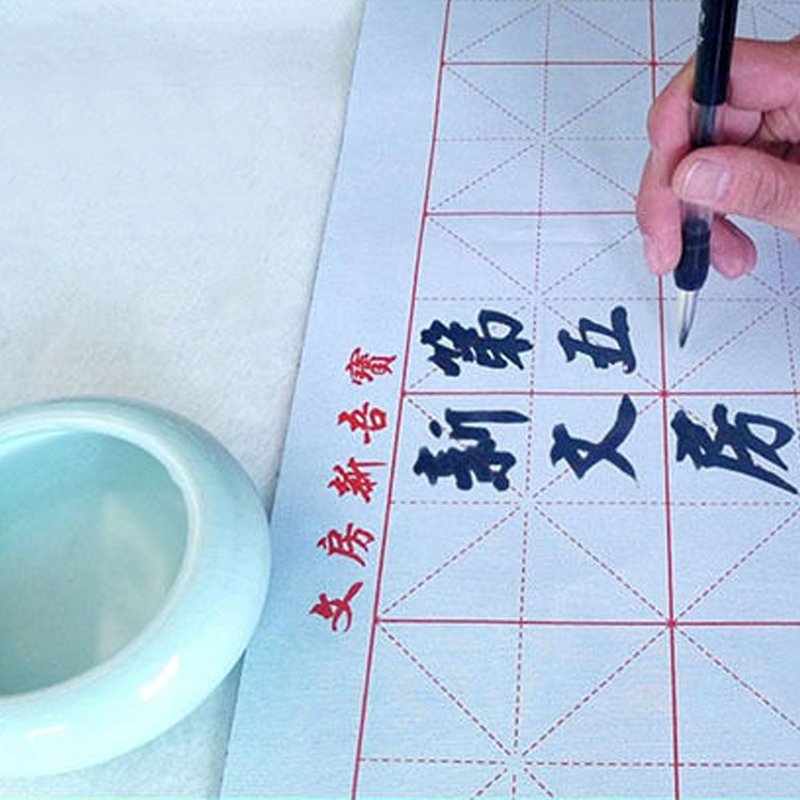 第五
新文房
文房新吾寶